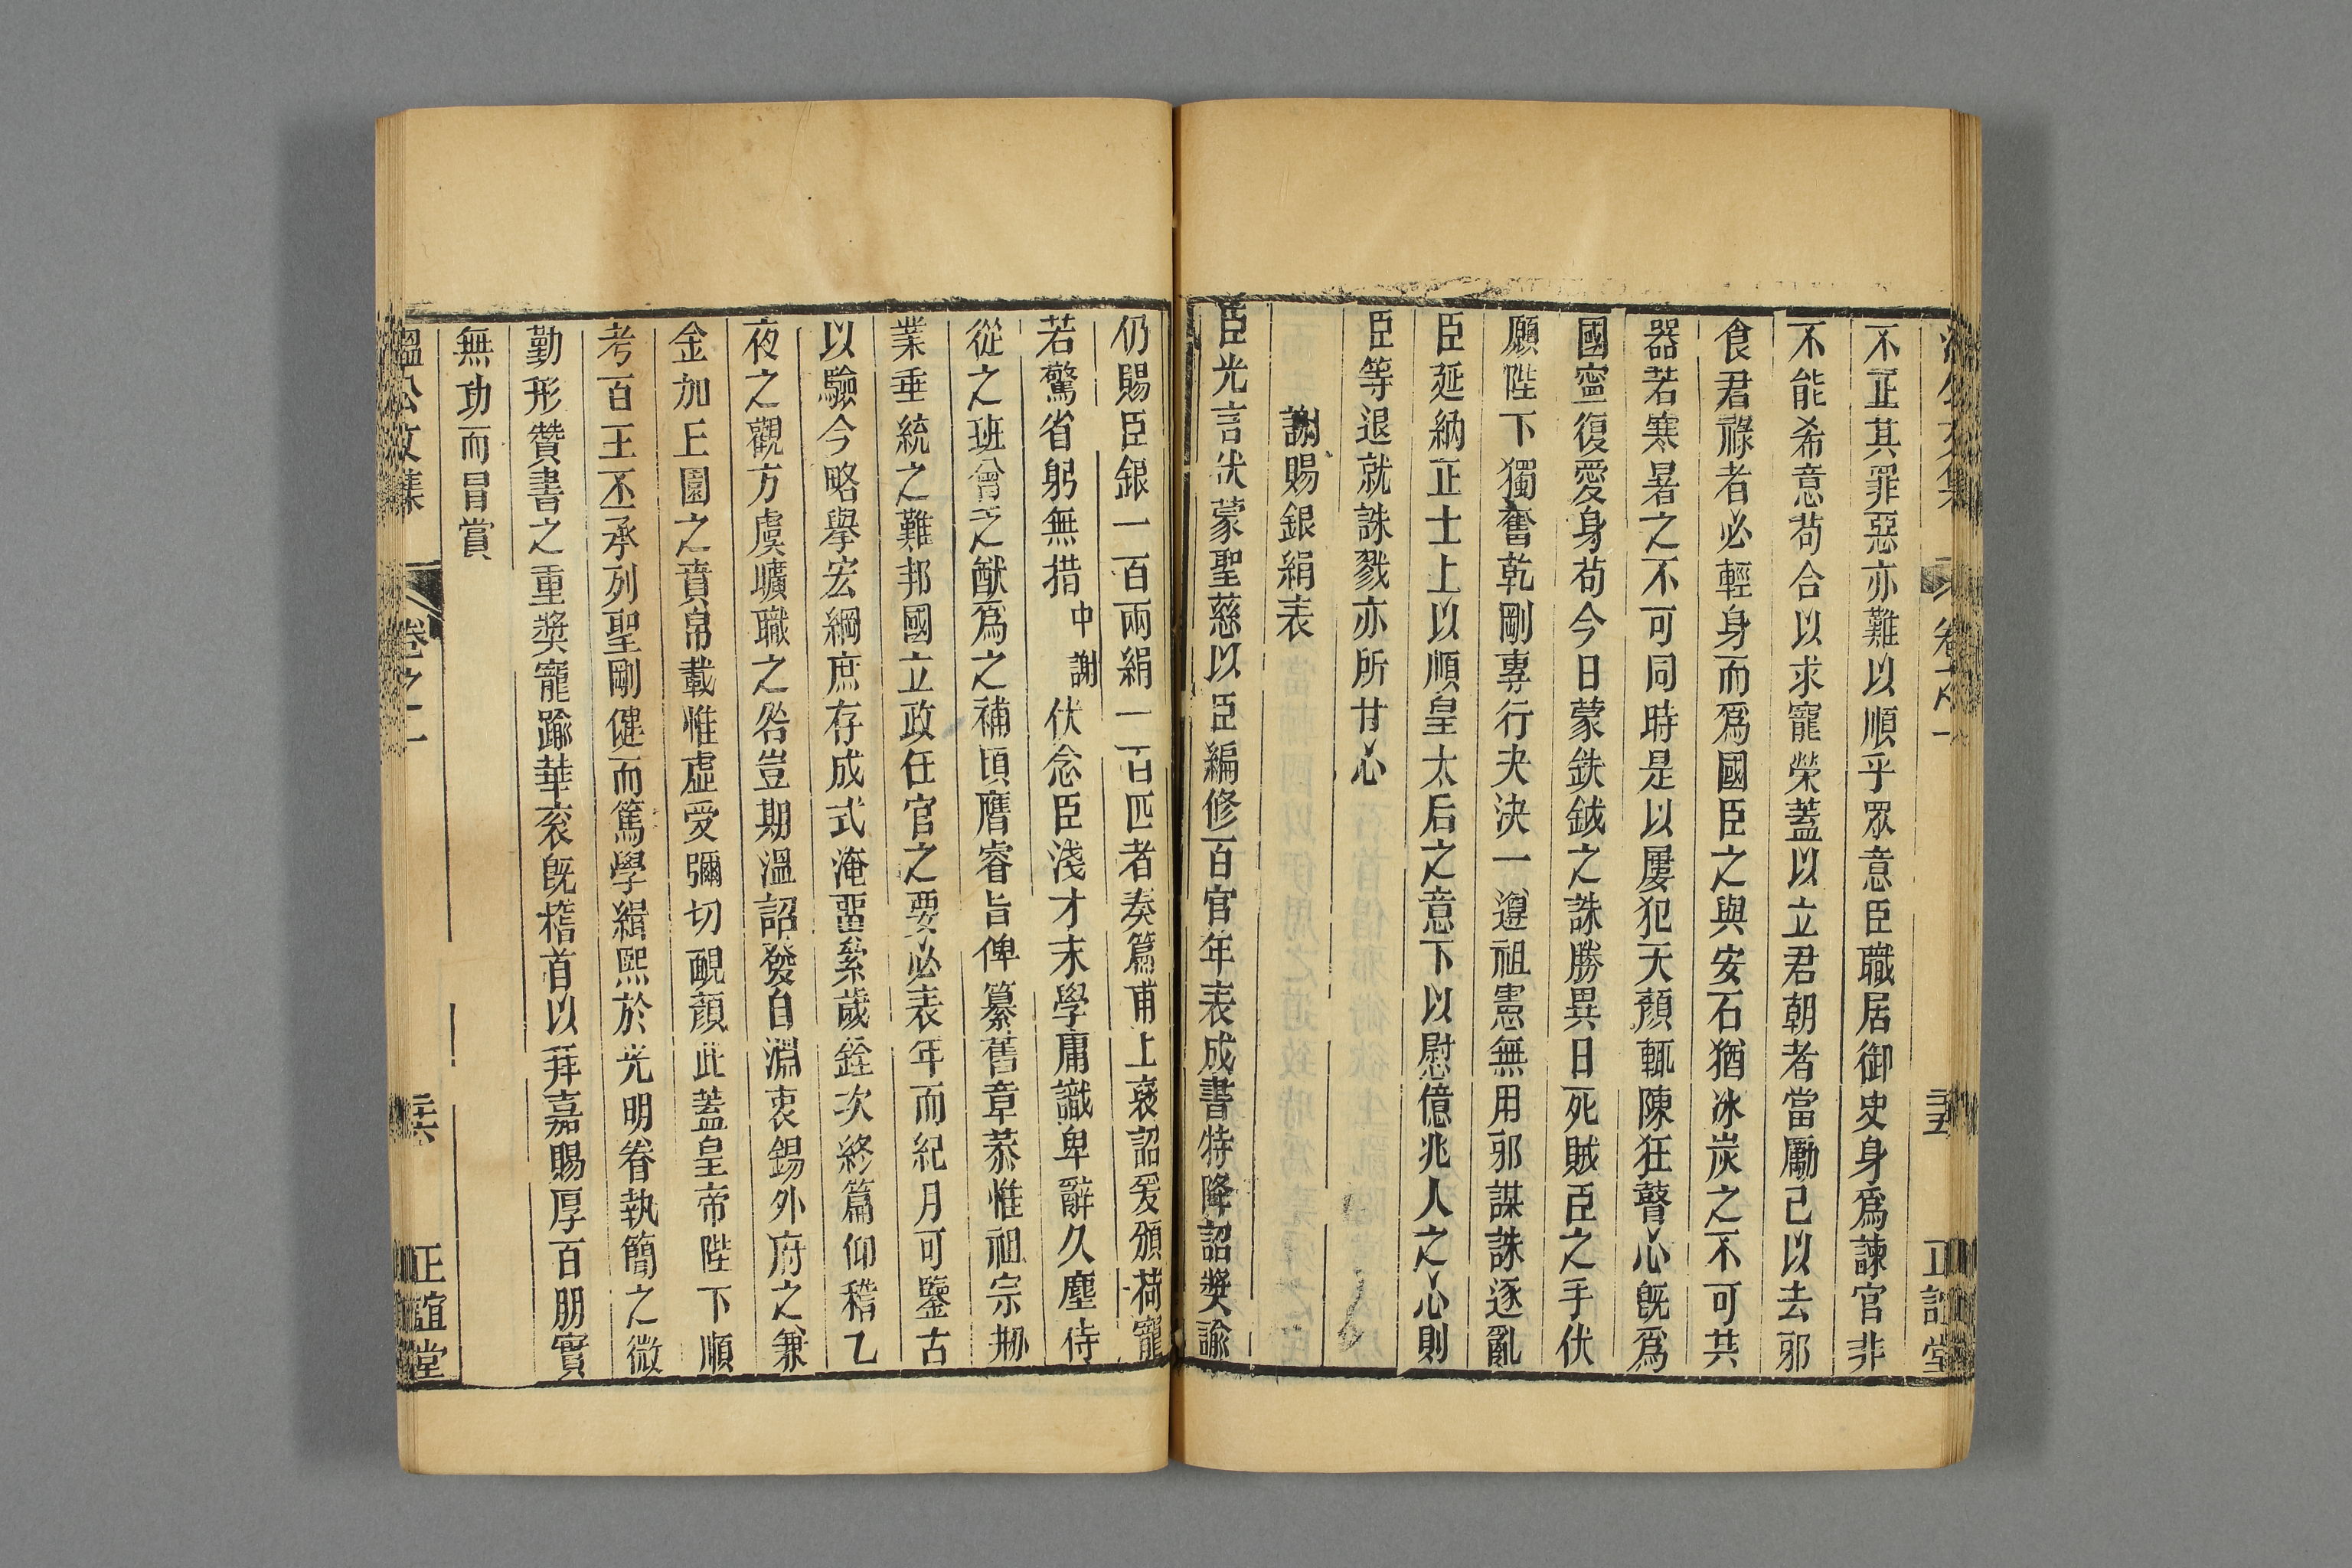 不正其罪惡亦難以順乎眾意臣職居御史身爲諫官非
不能希意苟合以求寵榮蓋以立君朝者當勵己以去邪
食君祿者必輕身而爲國臣之與安石猶冰炭之不可共
器若寒暑之不可同時是以屢犯天顏輒陳狂瞽心旣爲
國寧復愛身苟今日蒙鈇鉞之誅勝異日死賊臣之手伏
願陛下獨奮乾剛專行夬決一遵祖憲無用邪謀誅逐亂
臣延納正士上以順皇太后之意下以慰億兆人之心則
臣等退就誅戮亦所甘心
謝賜銀絹表
臣光言伏蒙聖慈以臣編修百官年表成書特降詔奬諭
仍賜臣銀一百兩絹一百匹者奏篇甫上褒詔爰頒荷寵
若驚省躬無措中謝伏念臣淺才末學庸識卑辭久塵侍
從之班曾乏猷爲之補頃膺睿旨俾纂舊章恭惟祖宗刱
業垂統之難邦國立政任官之要必表年而紀月可鑒古
以驗今略舉宏綱庶存成式淹畱絫歲銓次終篇仰稽乙
夜之觀方虞曠職之咎豈期溫詔發自淵衷錫外府之兼
金加上園之賁帛載惟虛受彌切靦顏此蓋皇帝陛下順
考百王丕承列聖剛健而篤學緝熙於光明眷執簡之微
勤形贊書之重奬寵踰華衮旣稽首以拜嘉賜厚百朋實
無功而冒賞
溫公文集 卷之二 三六 正誼堂